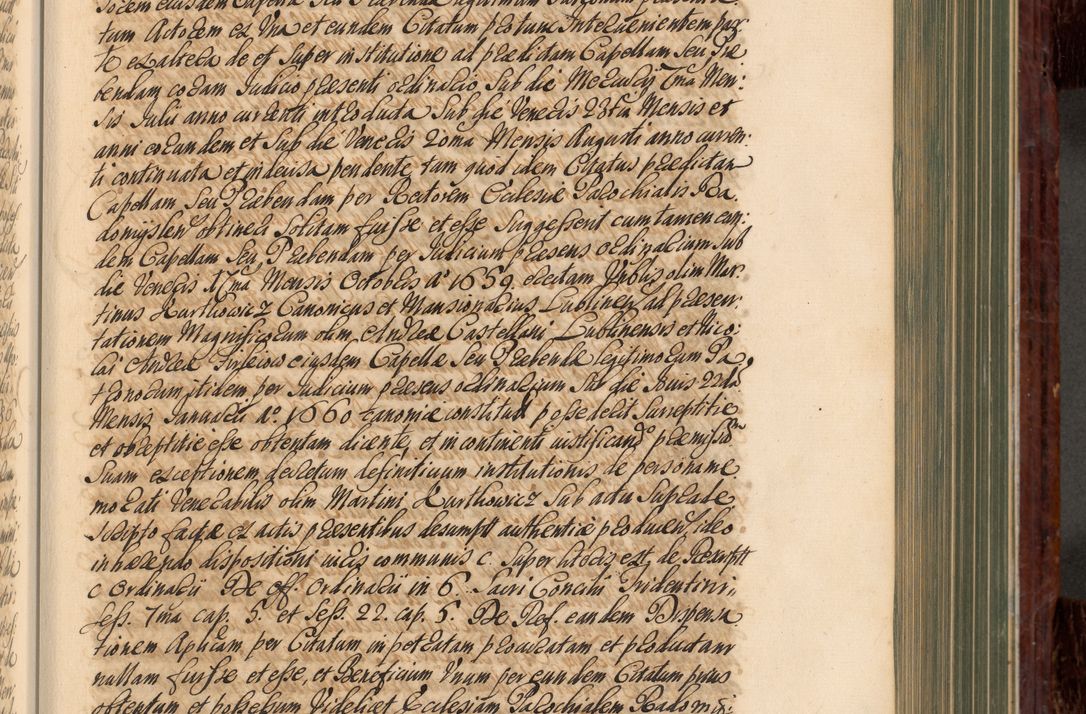 tum Actorem ex Una et eundem Citatum protunc Intervenientem par:
te ex altera de et super institutione ad praedictam Capellam seu Prae
bendam coram Judicio praesenti ordinario, Sub die Mercurij 7ma Men:
sis Julii anno currenti introducta Sub die Veneris 28va Mensis et
anni eorundem et Sub die Veneris 20ma Mensis Augusti anno curren:
ti continuata et indecisa pendente, tum quod idem Citatus praedictam
Capellam Seu Praebendam per Rectorem Ecclesiae Parochialis Ra.
domyslen obtineri Solitam fuisse et esse Suggesserit cum tamen ean:
dem Capellam Seu Praebendam per Judicium praesens ordinarium Sub
die Veneris 17ma Mensis Octobris Ao 1659. erectam Vrblis olim Mar:
tinus Kurthowicz Canonicus et Mansionarius Lublinen ad praesen:
tationem Magnificorum olim Andreae Castellani Lublinensis et Nico:
lai Andreae Firleiow eiusdem Capellae Seu Praebendae legitimorum Pa,
tronorum itidem per Judicium praesens ordinarium Sub die Jovis 22da
Mensis Januarii Ao. 1660 canonice constitut possederit Surreptitie
et obreptitie esse obtentam dicente, et in continenti iustificando praemissorum
Suam exceptionem decretum definitivum institutionis de persona me
morati Venerabilis olim Martini Kurthowicz Sub actu Suprade
scripto factae ex actis praesentibus desumpt authentice producen, ideo
inhaerendo dispositioni iuris communis c. Super literis ext. de Rescriptt
c Ordinarii De off. Ordinarii in 6. Sacri Concilii Tridentini,
sess. 7ma cap. 5. et Sess. 22. cap. 5. De Ref. eandem Dispensa
tionem Aplicam per Citatum impetratam procuratam et productam
nullam fuisse et esse, et Beneficium Unum per eundem Citatum prius
obtentum et possessum videlicet Ecclesiam Parochialem Radomi: